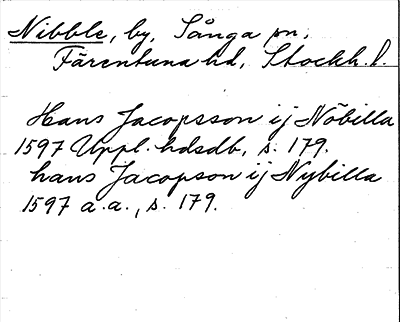 Nibble, by, Sånga sn,
Färentuna hd, Stockh. l.
Hans Jacopsson ij Nöbilla
1597 Uppl. hdsdb, s. 179.
hans Jacopson ij Nybilla
1597 a.a., s. 179.